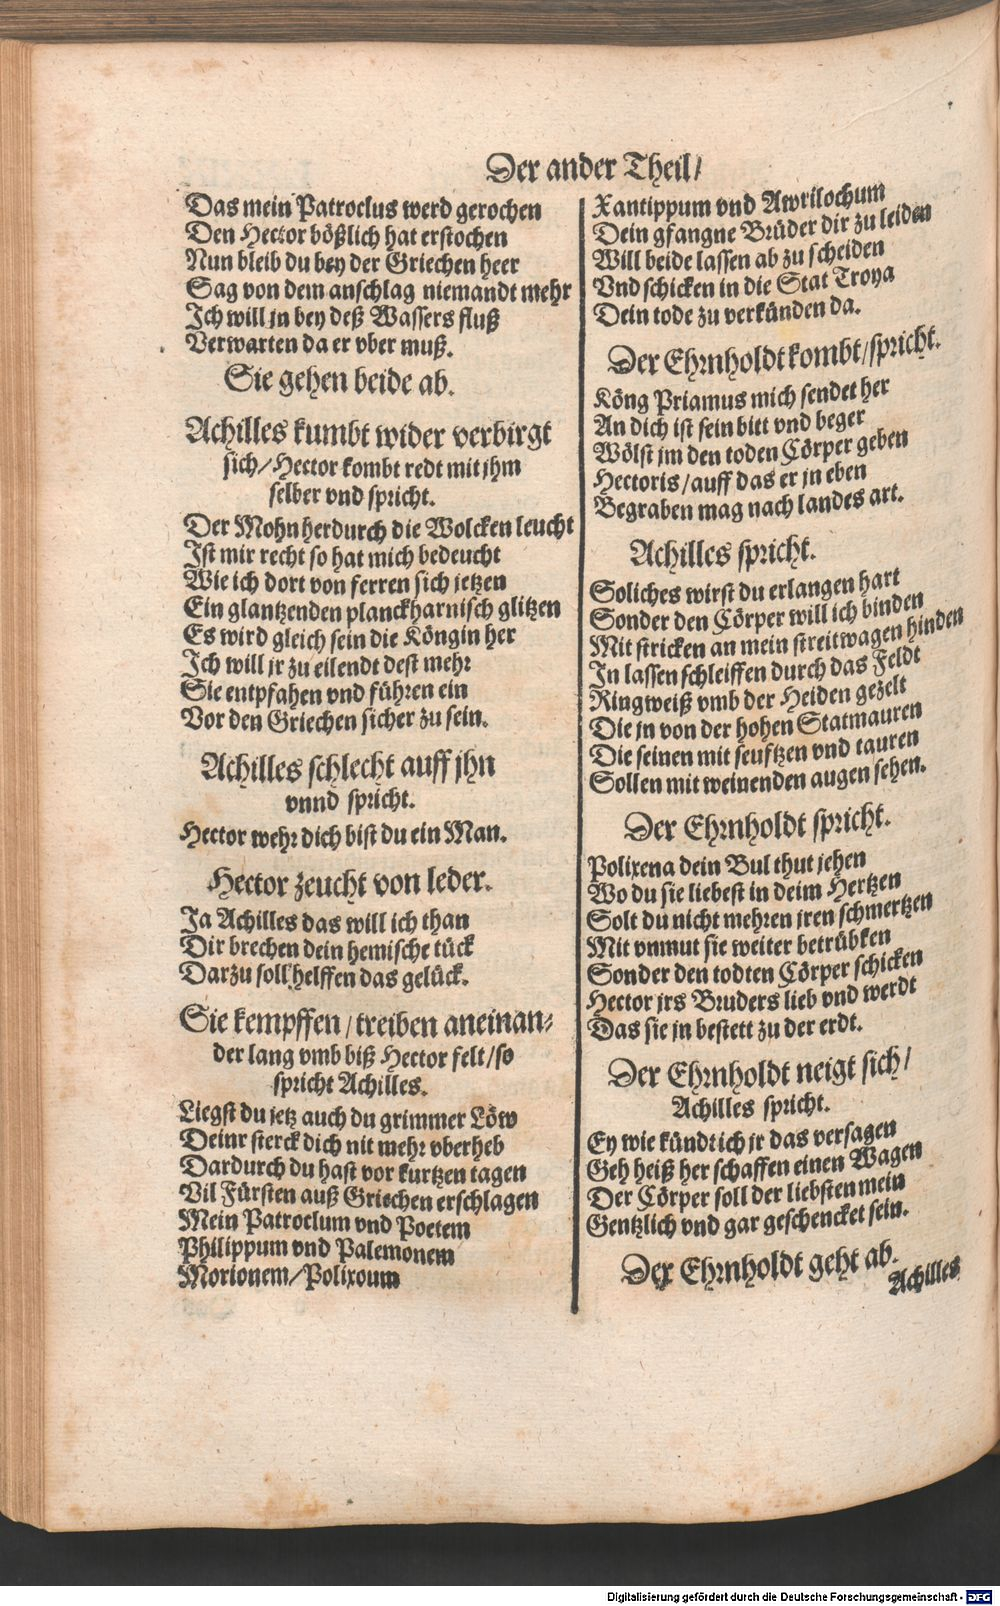 Der ander Theil/
Das mein Patroclus werd gerochen
Den Hector bößlich hat erstochen
Nun bleib du bey der Griechen heer
Sag von dem anschlag niemandt mehr
Ich will jn bey deß Wassers fluß
Verwarten da er vber muß.
Sie gehen beide ab.
Achilles kumbt wider verbirgt
sich/Hector kombt redt mit jhm
selber vnd spricht.
Der Mohn herdurch die Wolcken leucht
Ist mir recht so hat mich bedeucht
Wie ich dort von ferren sich jetzen
Ein glantzenden planckharnisch glitzen
Es wird gleich sein die Köngin her
Ich will jr zu eilendt dest mehr
Sie entpfahen vnd führen ein
Vor den Griechen sicher zu sein.
Achilles schlecht auff jhn
vnnd spricht.
Hector wehr dich bist du ein Man.
Hector zeucht von leder.
Ja Achilles das will ich than
Dir brechen dein hemische tück
Darzu soll helffen das gelück.
Sie kempffen/treiben aneinan-
der lang vmb biß Hector felt/so
spricht Achilles.
Liegst du jetz auch du grimmer Löw
Deinr sterck dich nit mehr vberheb
Dardurch du hast vor kurtzen tagen
Vil Fürsten auß Griechen erschlagen
Mein Patroclum vnd Poetem
Philippum vnd Palemonem
Morionem/Polixoum
Xantippum vnd Awrilochum
Dein gfangne Brüder dir zu leiden
Will beide lassen ab zu scheiden
Vnd schicken in die Stat Troya
Dein tode zu verkünden da.
Der Ehrnholdt kombt/spricht.
Köng Priamus mich sendet her
An dich ist sein bitt vnd beger
Wölst jm den toden Cörper geben
Hectoris/auff das er jn eben
Begraben mag nach landes art.
Achilles spricht.
Soliches wirst du erlangen hart
Sonder den Cörper will ich binden
Mit stricken an mein streitwagen hinden
In lassen schleiffen durch das Feldt
Ringweiß vmb der Heiden gezelt
Die jn von der hohen Statmauren
Die seinen mit seufftzen vnd tauren
Sollen mit weinenden augen sehen.
Der Ehrnholdt spricht.
Polixena dein Bul thut jehen
Wo du sie liebest in deim Hertzen
Solt du nicht mehren jren schmertzen
Mit vnmut sie weiter betrübken
Sonder den todten Cörper schicken
Hector jrs Bruders lieb vnd werdt
Das sie jn bestett zu der erdt.
Der Ehrnholdt neigt sich/
Achilles spricht.
Ey wie kündt ich jr das versagen
Geh heiß her schaffen einen Wagen
Der Cörper soll der liebsten mein
Gentzlich vnd gar geschencket sein.
Der Ehrnholdt geht ab.
Achilles
Digitalisierung gefördert durch die Deutsche Forschungsgemeinschaft - DFG